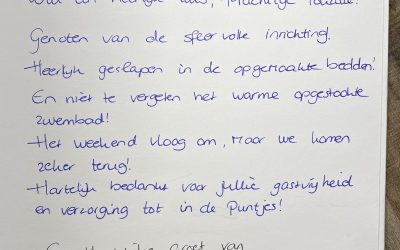 Genoten van de sfeervolle inrichting.
Heerlijk geslapen in de opgemaakte bedden!
En niet te vergeten het warme opgestookte
zwembad!
Het weekend vloog om, maar we komen
zeker terug!
Hartelijk bedankt voor jullie gastvrijheid
en verzorging tot in de Puntjes!
groet van